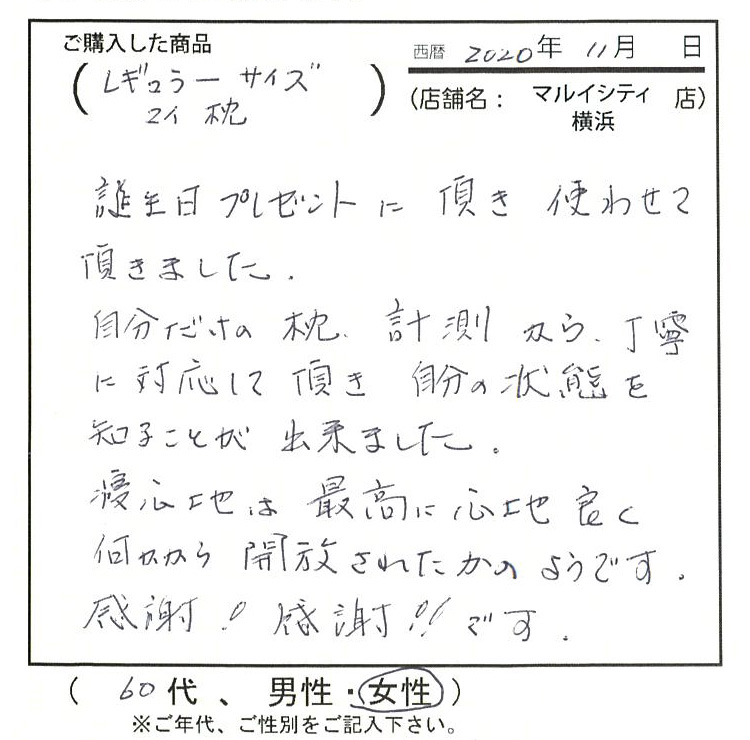 ご購入した商品
西暦 2020年 11月 日
(レギュラーサイズ
マイ 枕)
(店舗名： マルイシティ 横浜 店)
誕生日プレゼントに 頂き 使わせて
頂きました.
自分だけの 枕. 計測 から. 丁寧
に 対応して 頂き 自分の状態を
知ることが 出来ました.
寝心地は 最高に心地良く
何かから 開放されたかのようです.
感謝! 感謝!!です.
( 60代、男性・女性)
※ご年代、ご性別をご記入下さい。